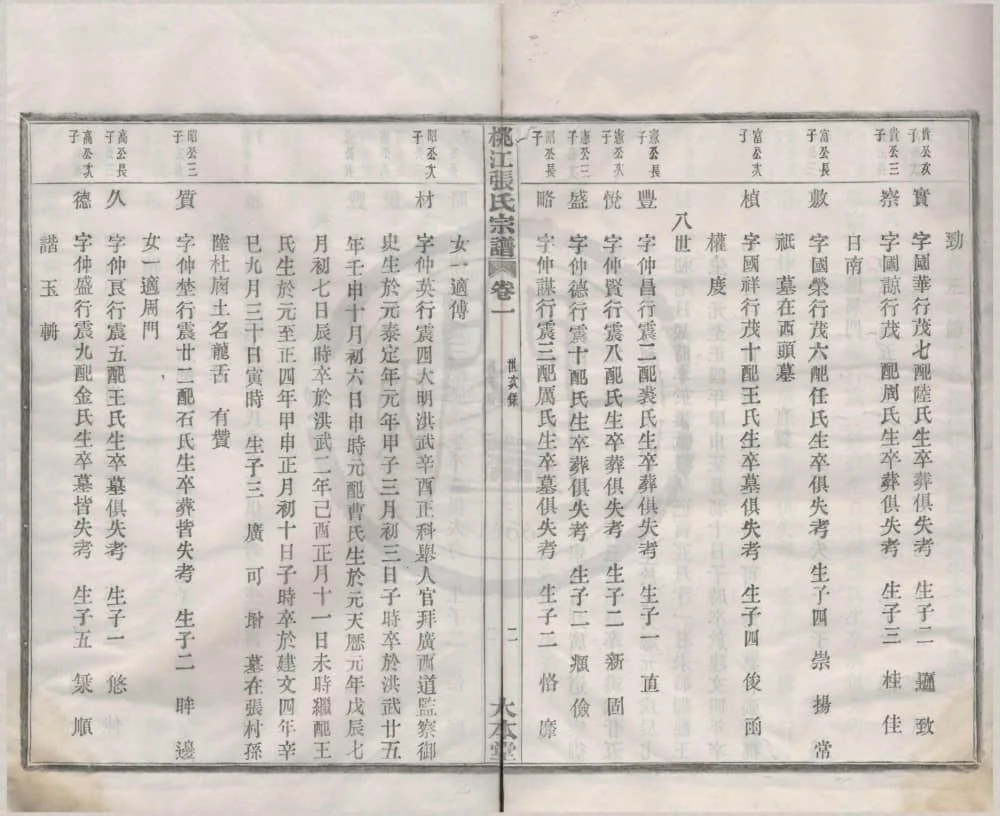 勁
貴公次子 實 字國華行茂七配陸氏生卒葬俱失考 生子二 邇 致
貴公三子 察 字國諒行茂 配周氏生卒葬俱失考 生子三 桂 佳
日南
富公長子 敷 字國榮行茂六配任氏生卒俱失考 生子四 崇 揚 常
祇 墓在西頭墓
富公次子 楨 字國祥行茂十配王氏生卒墓俱失考 生子四 俊 函
權 度
八世
憲公長子 豐 字仲昌行震二配裘氏生卒葬俱失考 生子一 直
憲公次子 悅 字仲賢行震八配氏生卒葬俱失考 生子二 新 固
憲公三子 盛 字仲德行震十配氏生卒葬俱失考 生子二 顺 儉
昭公長子 略 字仲謀行震三配厲氏生卒墓俱失考 生子二 恪 庸
桃江張氏宗譜 卷一 世次錄 二 大本堂
女一適傅
昭公次子 材 字仲英行震四大明洪武辛酉正科舉人官拜廣西道監察御
史生於元泰定年元年甲子三月初三日子時卒於洪武廿五
年壬申十月初六日申時元配曹氏生於元天歷元年戊辰七
月初七日辰時卒於洪武二年己酉正月十一日未時繼配王
氏生於元至正四年甲申正月初十日子時卒於建文四年辛
巳九月三十日寅時 生子三 廣 可 增 墓在張村孫
陸杜廟土名龍舌 有贊
昭公三子 質 字仲埜行震廿二配石氏生卒葬皆失考 生子二 畔 邊
女一適周門
高公長子 久 字仲良行震五配王氏生卒墓俱失考 生子一 悠
高公次子 德 字仲盛行震九配金氏生卒墓皆失考 生子五 榘 順
諧 玉 輈